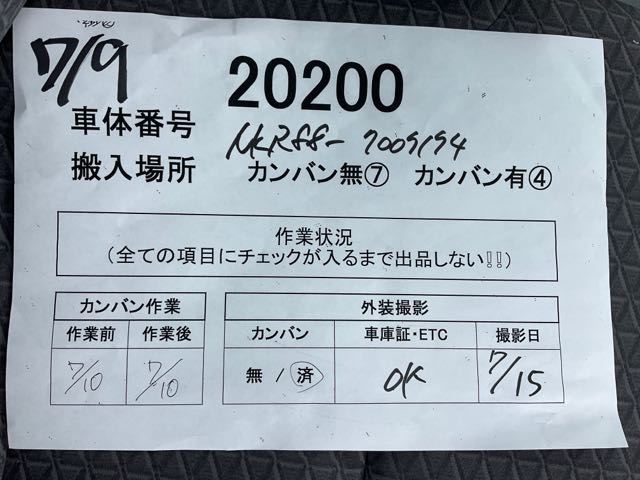 7/9
20200
車体番号 NKR88-7009194
搬入場所 カンバン無⑦ カンバン有④
作業状況
(全ての項目にチェックが入るまで出品しない!!)
カンバン作業
作業前 作業後
7/10 7/10
外装撮影
カンバン 車庫証・ETC 撮影日
無 / 済 OK 7/15